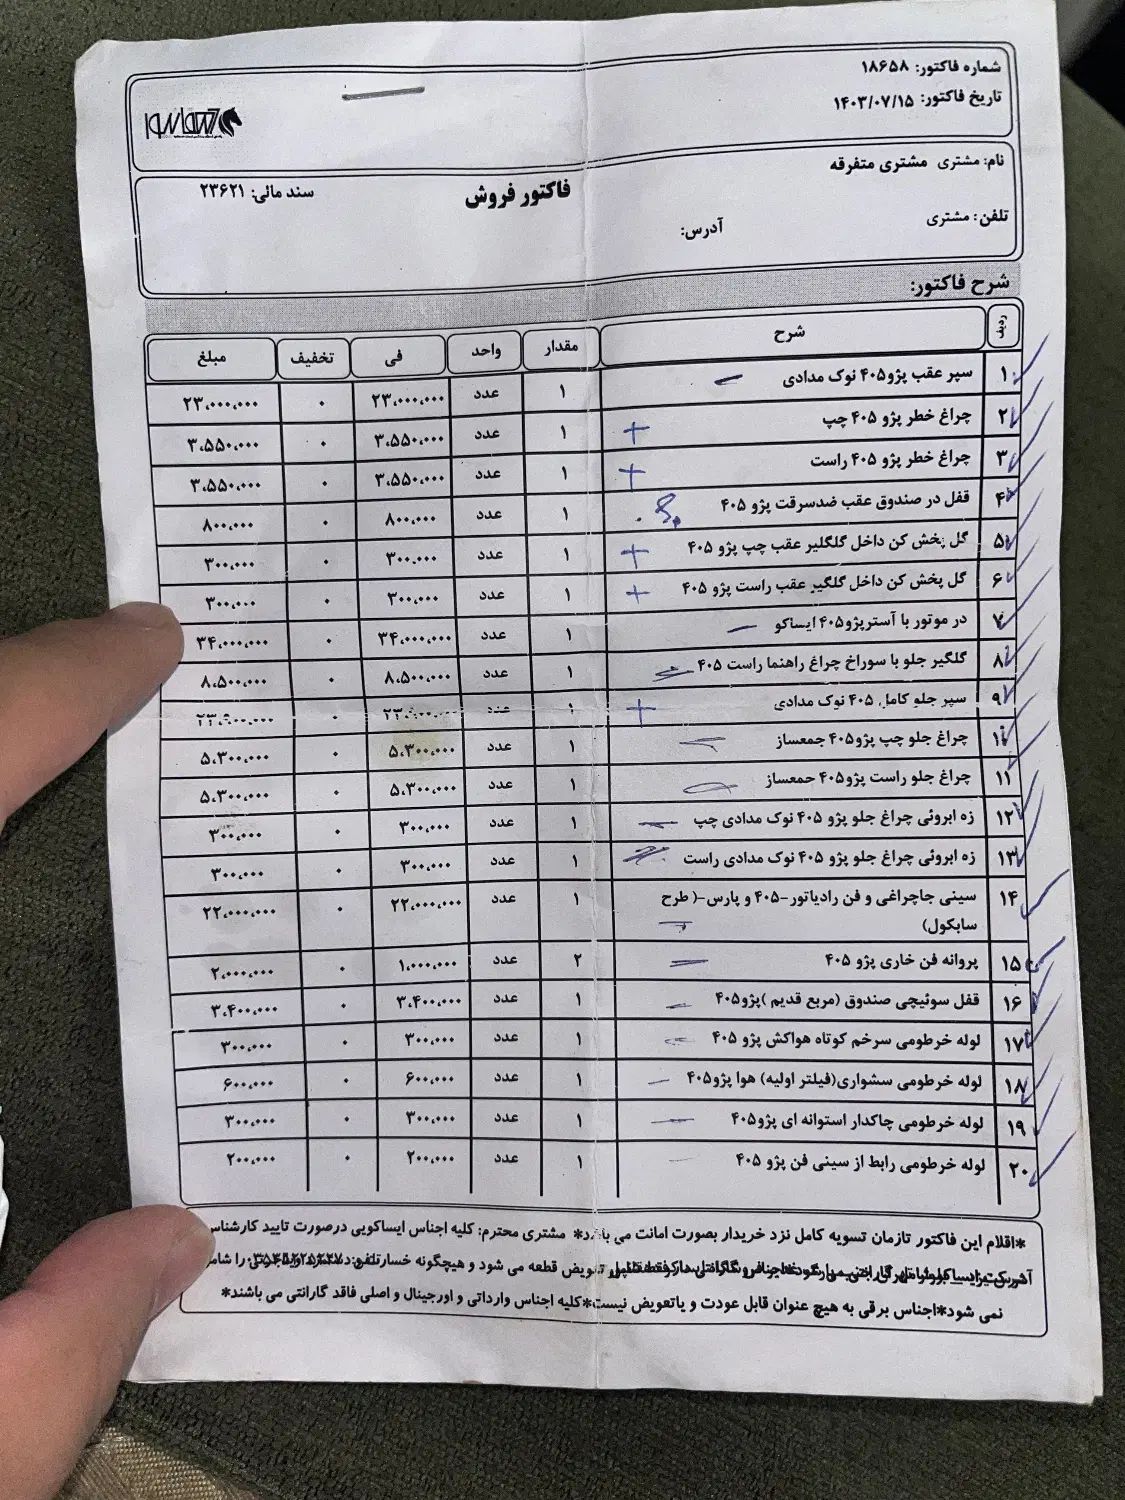 شماره فاکتور: ۱۸۶۵۸
تاریخ فاکتور: ۱۴۰۳/۰۷/۱۵
نام: مشتری مشتری متفرقه
فاکتور فروش
سند مالی: ۲۳۶۲۱
تلفن: مشتری
آدرس:
شرح فاکتور:
ردیف شرح مقدار واحد فی تخفیف مبلغ
۱ سپر عقب پژو۴۰۵ نوک مدادی ۱ عدد ۲۳،۰۰۰،۰۰۰ ۰ ۲۳،۰۰۰،۰۰۰
۲ چراغ خطر پژو ۴۰۵ چپ ۱ عدد ۳،۵۵۰،۰۰۰ ۰ ۳،۵۵۰،۰۰۰
۳ چراغ خطر پژو ۴۰۵ راست ۱ عدد ۳،۵۵۰،۰۰۰ ۰ ۳،۵۵۰،۰۰۰
۴ قفل در صندوق عقب ضدسرقت پژو ۴۰۵ ۱ عدد ۸۰۰،۰۰۰ ۰ ۸۰۰،۰۰۰
۵ گل پخش کن داخل گلگلیر عقب چپ پژو ۴۰۵ ۱ عدد ۳۰۰،۰۰۰ ۰ ۳۰۰،۰۰۰
۶ گل پخش کن داخل گلگیر عقب راست پژو ۴۰۵ ۱ عدد ۳۰۰،۰۰۰ ۰ ۳۰۰،۰۰۰
۷ در موتور با آسترپژو۴۰۵ ایساکو ۱ عدد ۳۴،۰۰۰،۰۰۰ ۰ ۳۴،۰۰۰،۰۰۰
۸ گلگیر جلو با سوراخ چراغ راهنما راست ۴۰۵ ۱ عدد ۸،۵۰۰،۰۰۰ ۰ ۸،۵۰۰،۰۰۰
۹ سپر جلو کامل ۴۰۵ نوک مدادی ۱ عدد ۰
۱۰ چراغ جلو چپ پژو۴۰۵ جمعساز ۱ عدد ۵،۳۰۰،۰۰۰ ۰ ۵،۳۰۰،۰۰۰
۱۱ چراغ جلو راست پژو۴۰۵ جمعساز ۱ عدد ۵،۳۰۰،۰۰۰ ۰ ۵،۳۰۰،۰۰۰
۱۲ زه ابروئی چراغ جلو پژو ۴۰۵ نوک مدادی چپ ۱ عدد ۳۰۰،۰۰۰ ۰ ۳۰۰،۰۰۰
۱۳ زه ابروئی چراغ جلو پژو ۴۰۵ نوک مدادی راست ۱ عدد ۳۰۰،۰۰۰ ۰ ۳۰۰،۰۰۰
۱۴ سینی جاچراغی و فن رادیاتور-۴۰۵ و پارس-( طرح ۱ عدد ۲۲،۰۰۰،۰۰۰ ۰ ۲۲،۰۰۰،۰۰۰
سابکول)
۱۵ پروانه فن خاری پژو ۴۰۵ ۲ عدد ۱،۰۰۰،۰۰۰ ۰ ۲،۰۰۰،۰۰۰
۱۶ قفل سوئیچی صندوق (مربع قدیم )پژو۴۰۵ ۱ عدد ۳،۴۰۰،۰۰۰ ۰ ۳،۴۰۰،۰۰۰
۱۷ لوله خرطومی سرخم کوتاه هواکش پژو ۴۰۵ ۱ عدد ۳۰۰،۰۰۰ ۰ ۳۰۰،۰۰۰
۱۸ لوله خرطومی سشواری(فیلتر اولیه) هوا پژو۴۰۵ ۱ عدد ۶۰۰،۰۰۰ ۰ ۶۰۰،۰۰۰
۱۹ لوله خرطومی چاکدار استوانه ای پژو۴۰۵ ۱ عدد ۳۰۰،۰۰۰ ۰ ۳۰۰،۰۰۰
۲۰ لوله خرطومی رابط از سینی فن پژو ۴۰۵ ۱ عدد ۲۰۰،۰۰۰ ۰ ۲۰۰،۰۰۰
*اقلام این فاکتور تازمان تسویه کامل نزد خریدار بصورت امانت می باشد* مشتری محترم: کلیه اجناس ایساکویی درصورت تایید کارشناس
تعویض قطعه می شود و هیچگونه خسارت را شامل
نمی شود*اجناس برقی به هیچ عنوان قابل عودت و یاتعویض نیست*کلیه اجناس وارداتی و اورجینال و اصلی فاقد گارانتی می باشند*